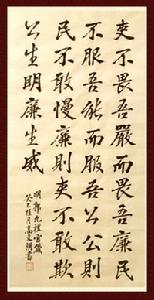 吏不畏吾嚴而畏吾廉民
不服吾能而服吾公公則
民不敢慢廉則吏不敢欺
公生明廉生威
明郭允禮官箴